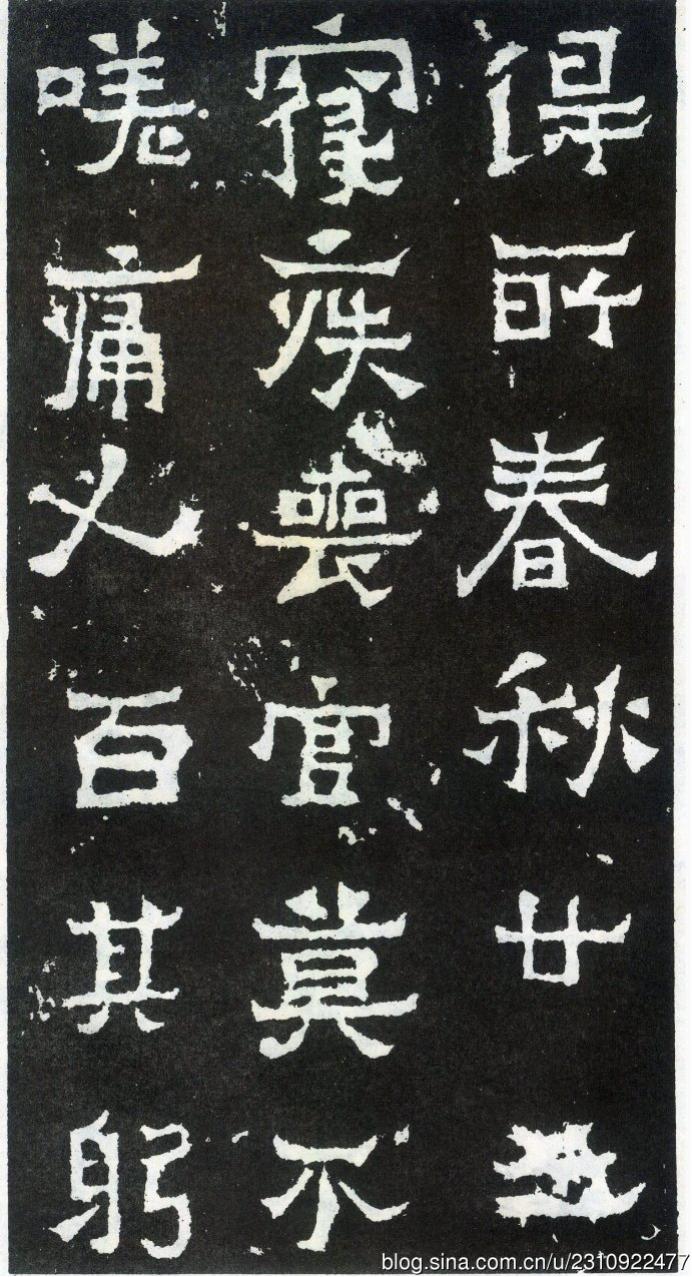 得所春秋廿
寢疾喪官莫不
嗟痛人百其躬
blog.sina.com.cn/u/2310922477